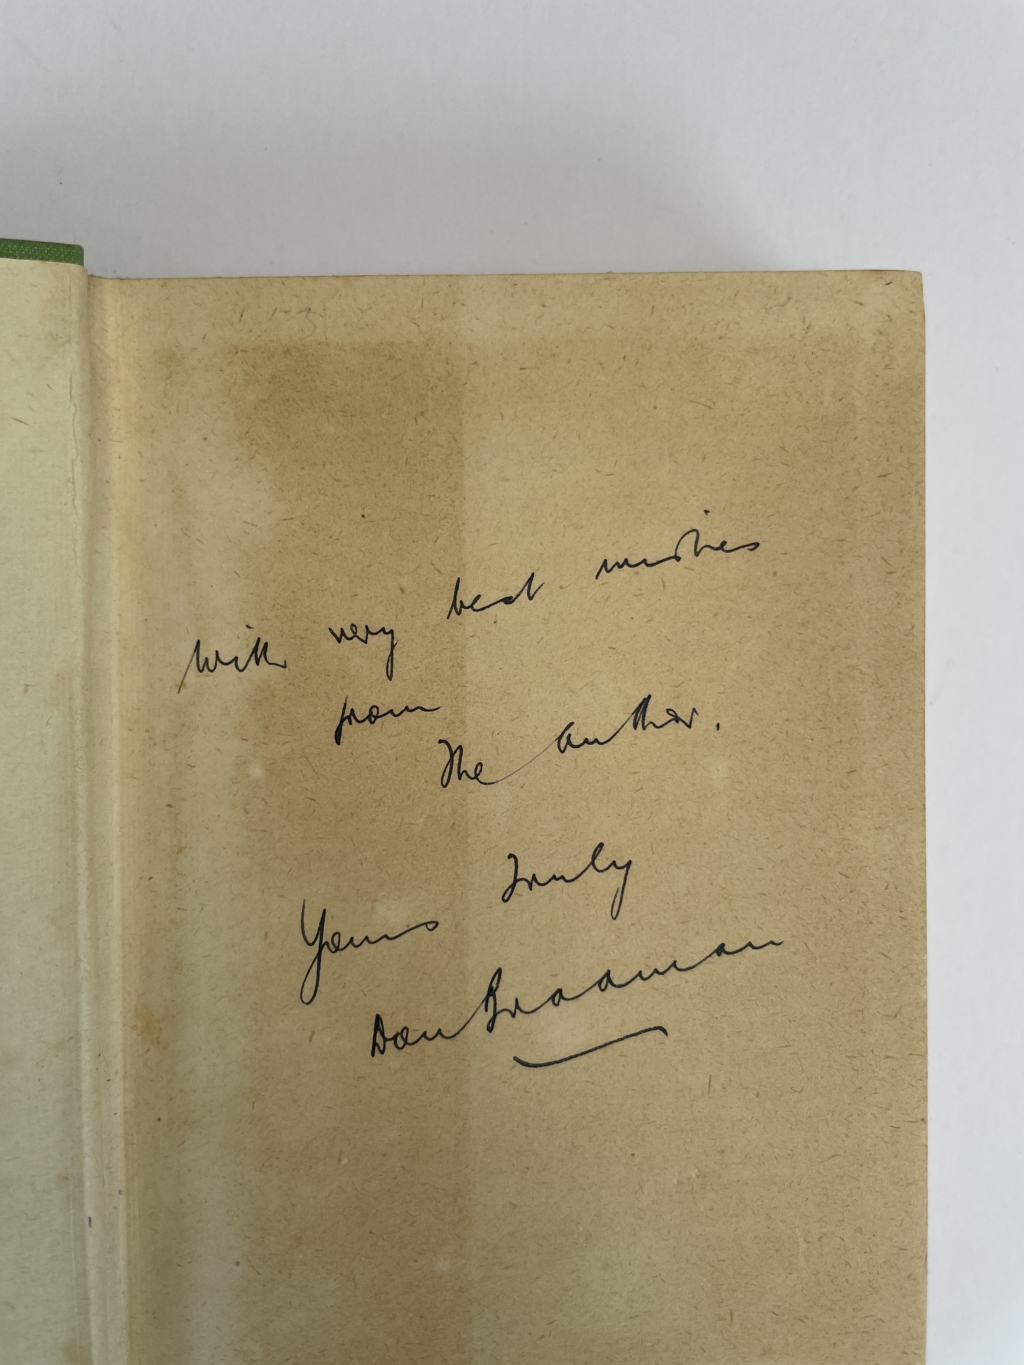 With very best wishes
from
The Author.
Yours Truly
Don Bradman